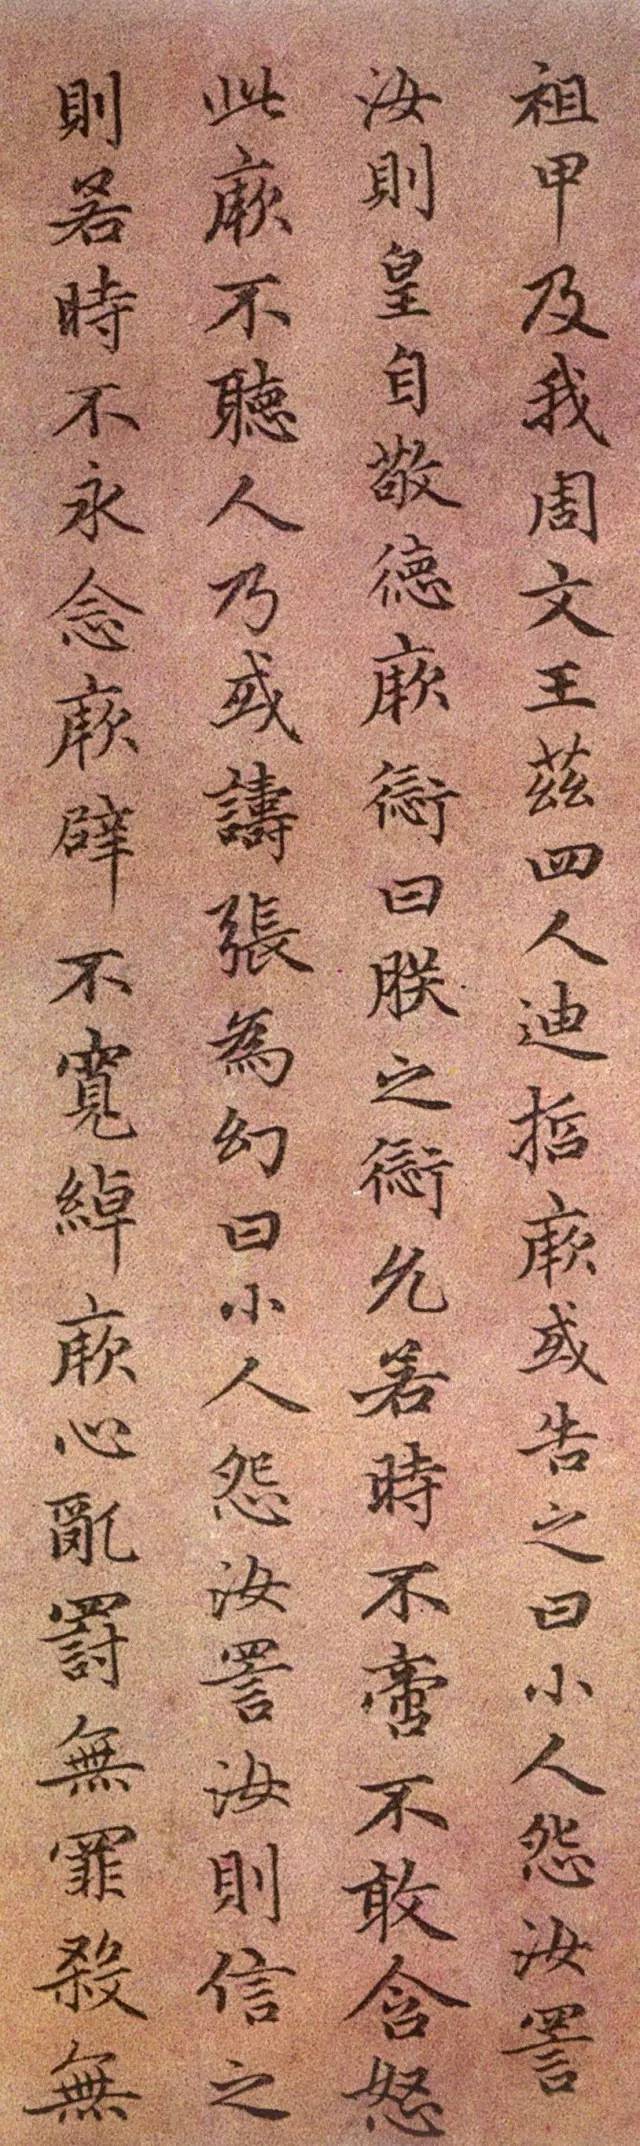 祖甲及我周文王茲四人迪哲厥或告之曰小人怨汝詈
汝則皇自敬德厥愆曰朕之愆允若時不啻不敢含怒
此厥不聽人乃或譸張為幻曰小人怨汝詈汝則信之
則若時不永念厥辟不寬綽厥心亂罰無罪殺無